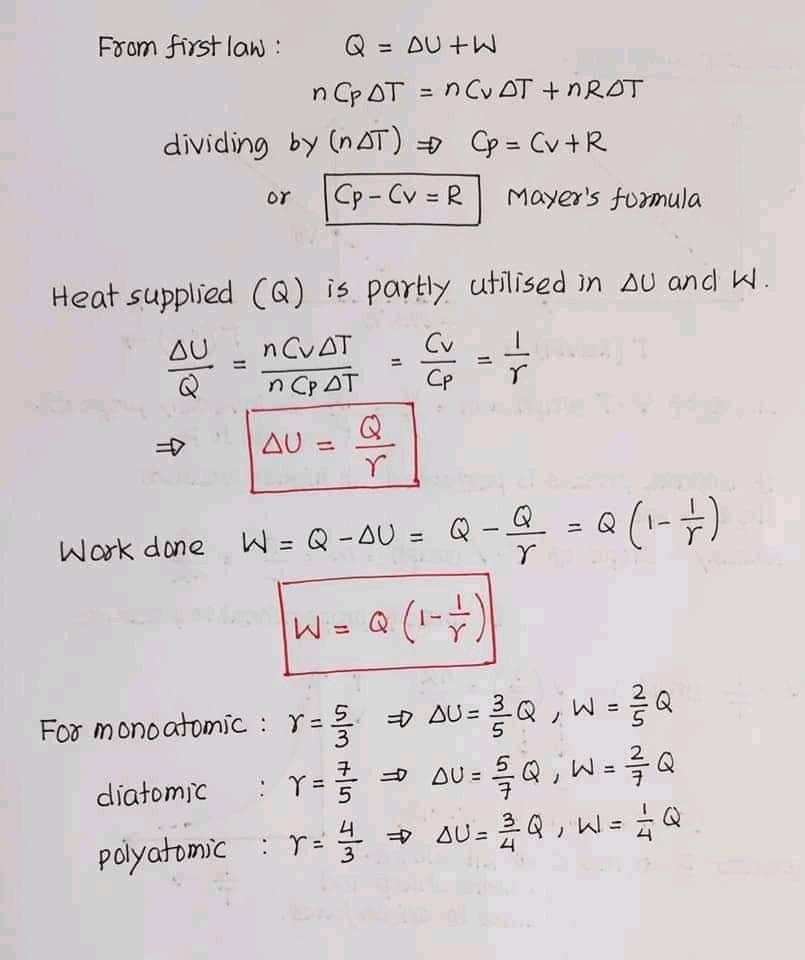 From first law : Q = ΔU + W
nCpΔT = nCvΔT + nRΔT
dividing by (nΔT) ⇒ Cp = Cv + R
or Cp - Cv = R Mayer's formula
Heat supplied (Q) is partly utilised in ΔU and W.
ΔU/Q = nCvΔT/nCpΔT = Cv/Cp = 1/γ
⇒ ΔU = Q/γ
Work done W = Q - ΔU = Q - Q/γ = Q (1 - 1/γ)
W = Q (1 - 1/γ)
For monoatomic : γ = 5/3 ⇒ ΔU = 3/5 Q , W = 2/5 Q
diatomic : γ = 7/5 ⇒ ΔU = 5/7 Q , W = 2/7 Q
polyatomic : γ = 4/3 ⇒ ΔU = 3/4 Q , W = 1/4 Q